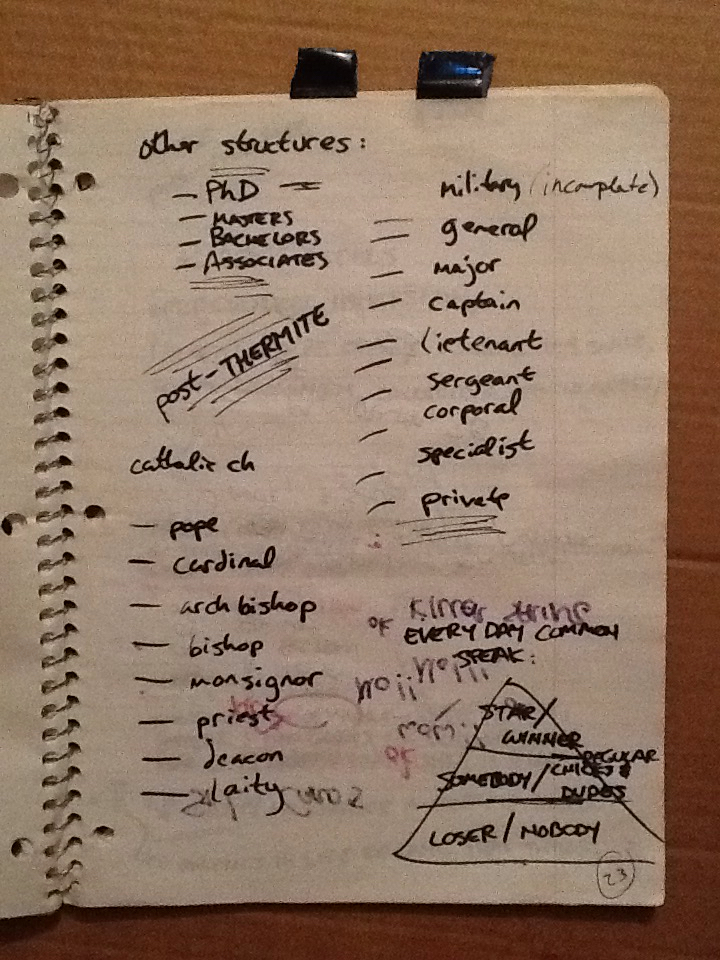 other structures:
— PhD —
— MASTERS
— BACHELORS
— ASSOCIATES
post-THERMITE
catholic ch
— pope
— cardinal
— archbishop
— bishop
— monsignor
— priest
— deacon
— laity
military (incomplete)
general
major
captain
lietenant
sergeant
corporal
specialist
private
EVERY DAY COMMON
SPEAK:
STAR/
WINNER
REGULAR
SOMEBODY/CHICKS &
DUDES
LOSER/NOBODY
23